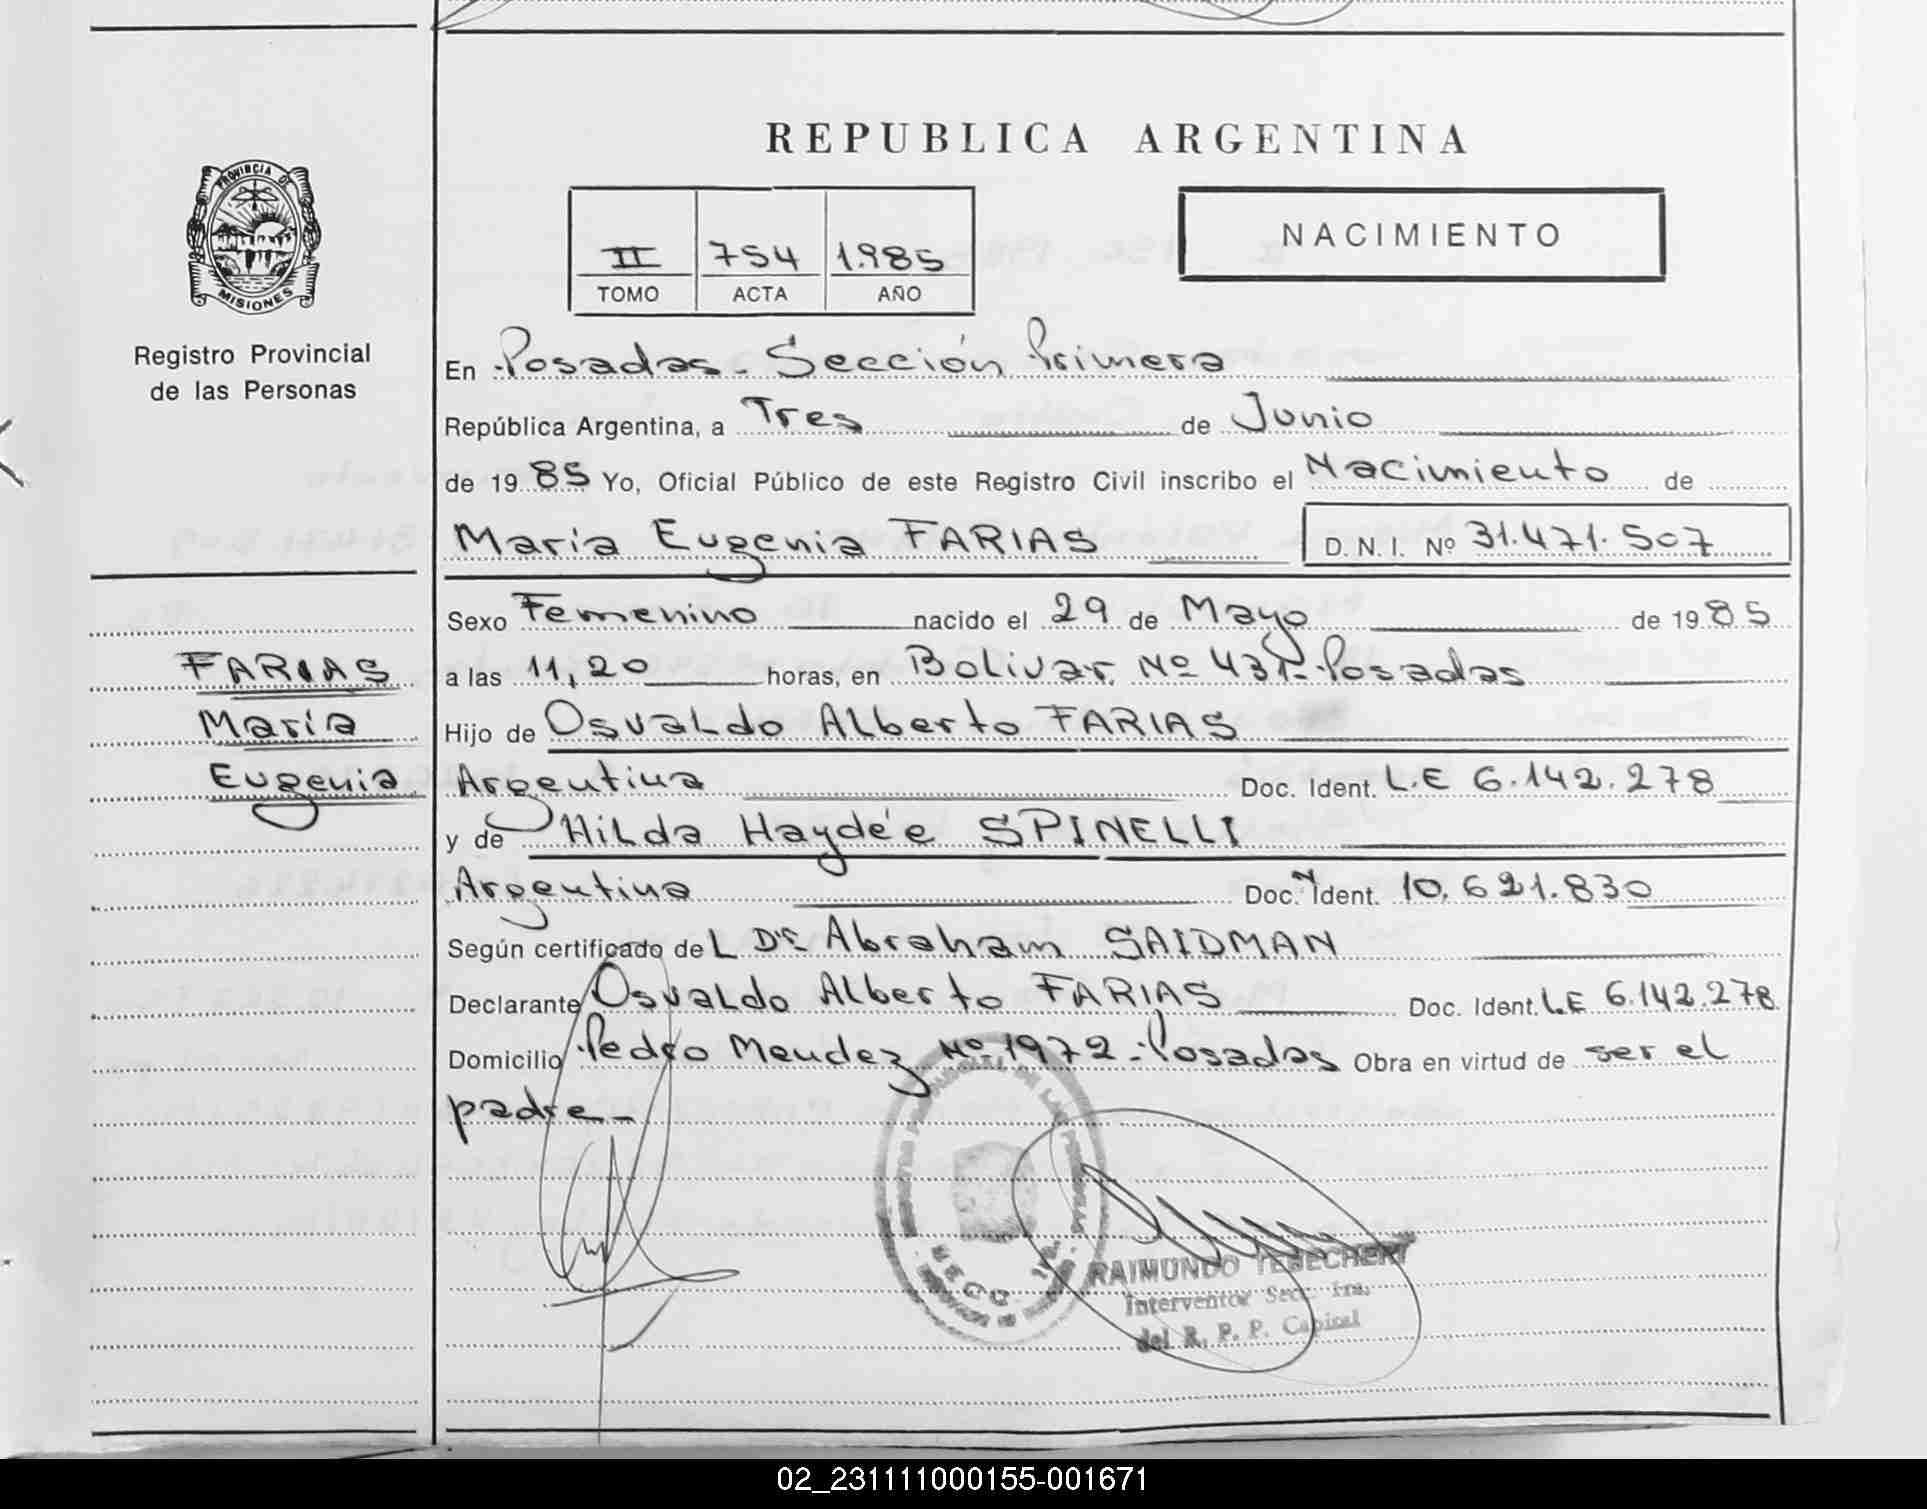 REPUBLICA ARGENTINA
PROVINCIA D
MISIONES
Registro Provincial
de las Personas
II 754 1.985
TOMO ACTA AÑO
NACIMIENTO
En Posadas - Sección Primera
República Argentina, a Tres de Junio
de 19 85 Yo, Oficial Público de este Registro Civil inscribo el Nacimiento de
María Eugenia FARIAS D.N.I. Nº 31.471.507
Sexo Femenino nacido el 29 de Mayo de 19 85
FARIAS
María
Eugenia
a las 11,20 horas, en Bolivar Nº 431 - Posadas
Hijo de Osvaldo Alberto FARIAS
Argentina Doc. Ident. L.E 6.142.278
y de Hilda Haydée SPINELLI
Argentina Doc. Ident. 10.621.830
Según certificado de L Dr. Abraham SAIDMAN
Declarante Osvaldo Alberto FARIAS Doc. Ident. L.E 6.142.278
Domicilio Pedro Mendez Nº 1972 - Posadas Obra en virtud de ser el
padre -
RAIMUNDO
Interventor Secc. 1ra.
del R. P. P. Capital
02_231111000155-001671